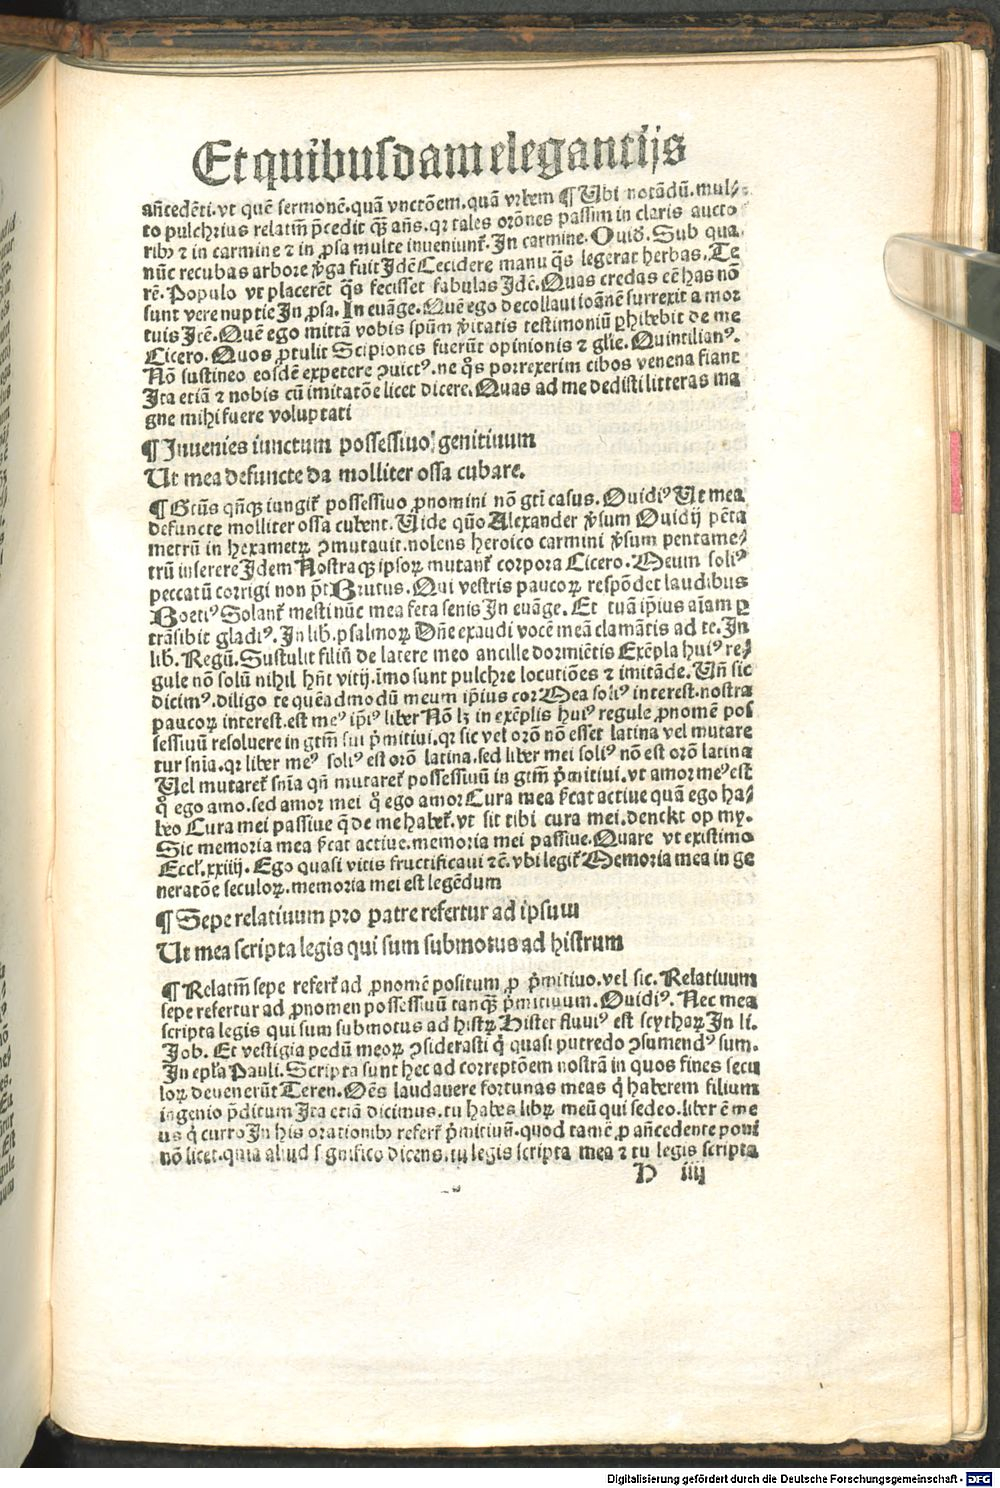 Et quibusdam elegantijs
an̄cedēti. vt quē sermonē. quā vnctōem. quā vrbem ¶ Ubi notādū. mul⸗
to pulchrius relatim̄ p̄cedit qꝫ an̄s. qꝛ tales orōnes passim in claris aucto
ribꝰ ⁊ in carmine ⁊ in ꝓsa multe inueniunt̄. In carmine. Ouid̄. Sub qua
nūc recubas arbore v̓ga fuit Jdē Cecidere manu q̄s legerat herbas. Te
rē. Populo vt placerēt q̄s fecisset fabulas Jdē. Quas credas eē has nō
sunt vere nuptie Jn ꝓsa. In euāge. Quē ego decollaui ioānē surrexit a mor
tuis Jtē. Quē ego mittā vobis spūm v̓itatis testimoniū ꝑhibebit de me
Cicero. Quos ꝓtulit Scipiones fuerūt opinionis ⁊ gl̄ie. Quintilianꝰ.
Nō sustineo eosdē expetere ꝯuictꝰ. ne q̄s porrexerim cibos venena fiant
Jta etiā ⁊ nobis cū imitatōe licet dicere. Quas ad me dedisti litteras ma
gne mihi fuere voluptati
¶ Jnuenies iunctum possessiuo genitiuum
Ut mea defuncte da molliter ossa cubare.
¶ Gtūs qn̄qꝫ iungit̄ possessiuo ꝓnomini nō gt̄i casus. Ouidiꝰ Ut mea
defuncte molliter ossa cubent. Uide quō Alexander v̓sum Ouidij pēta
metrū in hexametꝝ ꝯmutauit. nolens heroico carmini v̓sum pentame⸗
trū inserere Jdem Nostra qꝫ ipsoꝝ mutant̄ corpora Cicero. Meum soliꝰ
peccatū corrigi non p̄t Brutus. Qui vestris paucoꝝ respōdet laudibus
Boetiꝰ Solant̄ mesti nūc mea fata senis Jn euāge. Et tuā ip̄ius aīam ꝑ
trāsibit gladiꝰ. Jn lib̄. psalmoꝝ Dn̄e exaudi vocē meā clamātis ad te. Jn
lib̄. Regū. Sustulit filiū de latere meo ancille dormiētis Exēpla huiꝰ re⸗
gule nō solū nihil hn̄t vitij. īmo sunt pulchre locutiōes ⁊ imitāde. Un̄ sic
dicimꝰ. diligo te quēadmodū meum ip̄ius cor Mea soliꝰ interest. nostra
paucoꝝ interest. est meꝰ ip̄iꝰ liber Nō lꝫ in exēplis huiꝰ regule ꝓnomē pos
sessiuū resoluere in gtm̄ sui p̓mitiui. qꝛ sic vel orō nō esset latina vel mutare
tur sn̄ia. qꝛ liber meꝰ soliꝰ est orō latina. sed liber mei soliꝰ nō est orō latina
Uel mutaret̄ sn̄ia qn̄ mutaret̄ possessiuū in gtm̄ p̓mitiui. vt amor meꝰ est
q̓ ego amo. sed amor mei q̓ ego amor Cura mea s̄cat actiue quā ego ha⸗
beo Cura mei passiue q̄ de me habet̄. vt sit tibi cura mei. denckt op my.
Sic memoria mea s̄cat actiue. memoria mei passiue. Quare vt existimo
Eccl̄. xxiiij. Ego quasi vitis fructificaui ⁊c̄. vbi legit̄ Memoria mea in ge
neratōe seculoꝝ. memoria mei est legēdum
¶ Sepe relatiuum pro patre refertur ad ipsum
Ut mea scripta legis qui sum submotus ad histrum
¶ Relatim̄ sepe refert̄ ad ꝓnomē positum ꝓ p̓mitiuo. vel sic. Relatiuum
sepe refertur ad ꝓnomen possessiuū tanqꝫ p̓mitiuum. Ouidiꝰ. Nec mea
scripta legis qui sum submotus ad histꝝ Hister fluuiꝰ est scythaꝝ Jn li.
Job. Et vestigia pedū meoꝝ ꝯsiderasti q̓ quasi putredo ꝯsumendꝰ sum.
Jn epl̄a Pauli. Scripta sunt hec ad correptōem nostrā in quos fines secu
loꝝ deuenerūt Teren. Oēs laudauere fortunas meas q̓ haberem filium
ingenio p̄ditum Jta etiā dicimus. tu habes libꝝ meū qui sedeo. liber ē me
us q̓ curro Jn his orationibꝰ refert̄ p̓mitiuū. quod tamē ꝓ an̄cedente poni
nō licet. quia aliud significo dicens. tu legis scripta mea ⁊ tu legis scripta
H iiij
Digitalisierung gefördert durch die Deutsche Forschungsgemeinschaft - DFG